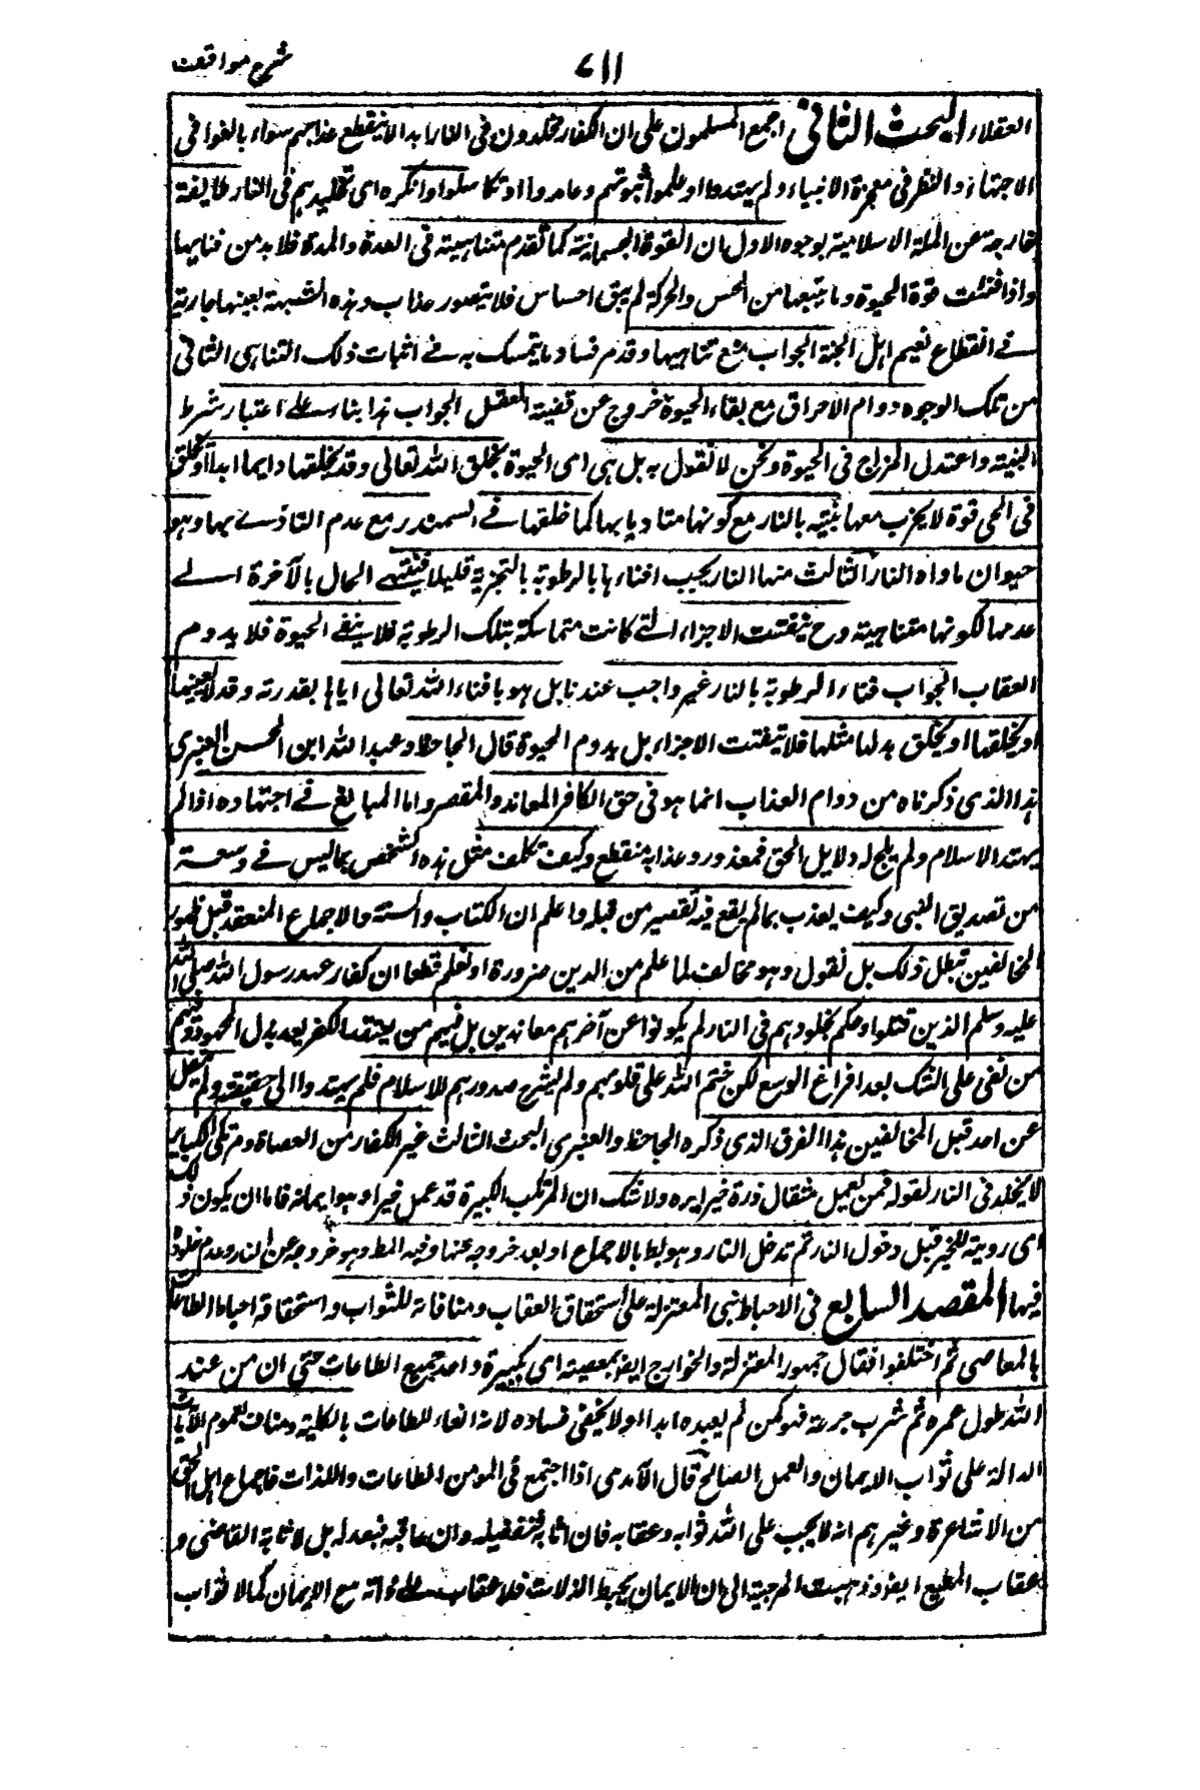 شرح مواقف
٧١١
العقلاء البحث الثانى اجمع المسلمون على ان الكفار مخلدون فى النار ابدا لا ينقطع عذابهم سواء بالغوا فى
الاجتهاد والنظر فى معجزة الانبياء ولم يهتدوا او علموا نبوتهم وعاندوا او تكاسلوا وانكره اى تخليدهم فى النار طايفة
خارجة عن الملة الاسلامية بوجوه الاول ان القوة الجسمانية كما تقدم متناهية فى العدة والمدة فلا بد من فنايها
واذا فنئت قوة الحيوة وما يتبعها من الحس والحركة لم يبق احساس فلا يتصور عذاب وهذه الشبهة بعينها جارية
فى انقطاع نعيم اهل الجنة الجواب منع تناهيها وقد مر فساد ما يتمسك به فى اثبات ذلك التناهى الثانى
من تلك الوجوه دوام الاحراق مع بقاء الحيوة خروج عن قضية العقل الجواب هذا بناء على اعتبار شرط
البنية واعتدل المزاج فى الحيوة ونحن لا نقول به بل هى اى الحيوة بخلق الله تعالى وقد يخلقها دايما ابدا او يخلق
فى الحى قوة لا يخرب معها بنيته بالنار مع كونها متاذيا بها كما خلقها فى السمندر مع عدم التاذى بها وهو
حيوان ماواه النار الثالث منها النار يجب افناءها بالرطوبة بالتجزية قليلا قليلا فينتهى الحال بالآخرة الى
عدمها لكونها متناهية وح يتفتت الاجزاء التى كانت متماسكة بتلك الرطوبة فلا يبقى الحيوة فلا يدوم
العقاب الجواب فناء الرطوبة بالنار غير واجب عندنا بل هو بافناء الله تعالى اياها بقدرته وقد لا يفنيها
او يخلقها او يخلق بدلها مثلها فلا يتفتت الاجزاء بل يدوم الحيوة قال الجاحظ وعبد الله ابن الحسن العنبرى
هذا الذى ذكرناه من دوام العذاب انما هو فى حق الكافر المعاند والمقصر واما المبالغ فى اجتهاده اذا لم
يهتد الاسلام ولم يلح له دلايل الحق فمعذور وعذابه منقطع وكيف تكلف مثل هذه الشخص بما ليس فى وسعه
من تصديق النبى وكيف يعذب بما لم يقع فيه تقصير من قبله واعلم ان الكتاب والسنة والاجماع المنعقد قبل ظهور
المخالفين تبطل ذلك بل نقول وهو مخالف لما علم من الدين ضرورة او نعلم قطعا ان كفار عهد رسول الله صلى الله
عليه وسلم الذين قتلوا وحكم بخلودهم فى النار لم يكونوا عن آخرهم معاندين بل فيهم من يعتقد الكفر بعد بذل المجهود وفيهم
من بقى على الشك بعد افراغ الوسع لكن ختم الله على قلوبهم ولم يشرح صدورهم للاسلام فلم يهتدوا الى حقيقته ولم ينقل
عن احد قبل المخالفين هذا الفرق الذى ذكره الجاحظ والعنبرى البحث الثالث غير الكفار من العصاة ومرتكبى الكباير
لا يخلد فى النار لقوله فمن يعمل مثقال ذرة خيرا يره ولا شك ان المرتكب الكبيرة قد عمل خيرا وهو ايمانه فاما ان يكون ذلك
اى روية للخير قبل دخول النار ثم تدخل النار وهو بط بالاجماع او بعد خروجه عنها وفيه المط وهو خروجه عن النار وعدم خلوده
فيها المقصد السابع فى الاحباط بنى المعتزلة على استحقاق العقاب ومنافاته للثواب واستحقاقه احباط الطاعات
بالمعاصى ثم اختلفوا فقال جمهور المعتزلة والخوارج ايضا بمعصية اى كبيرة واحدة جميع الطاعات حتى ان من عند
الله طول عمره ثم شرب جرعة فهو كمن لم يعبده ابدا ولا يخفى فساده لانه الغاء للطاعات بالكلية ومناف لعموم الآيات
الدالة على ثواب الايمان والعمل الصالح قال الآمدى اذا اجتمع فى المومن الطاعات والذلات فاجماع اهل الحق
من الاشاعرة وغيرهم انه لا يجب على الله ثوابه وعقابه فان اثابه فبفضله وان عاقبه فبعدله بل لاثابة القاصى و
عقاب المطيع ايضا وذهبت المرجية الى ان الايمان يحبط الزلات فلا عقاب على زلته مع الايمان كما لا ثواب